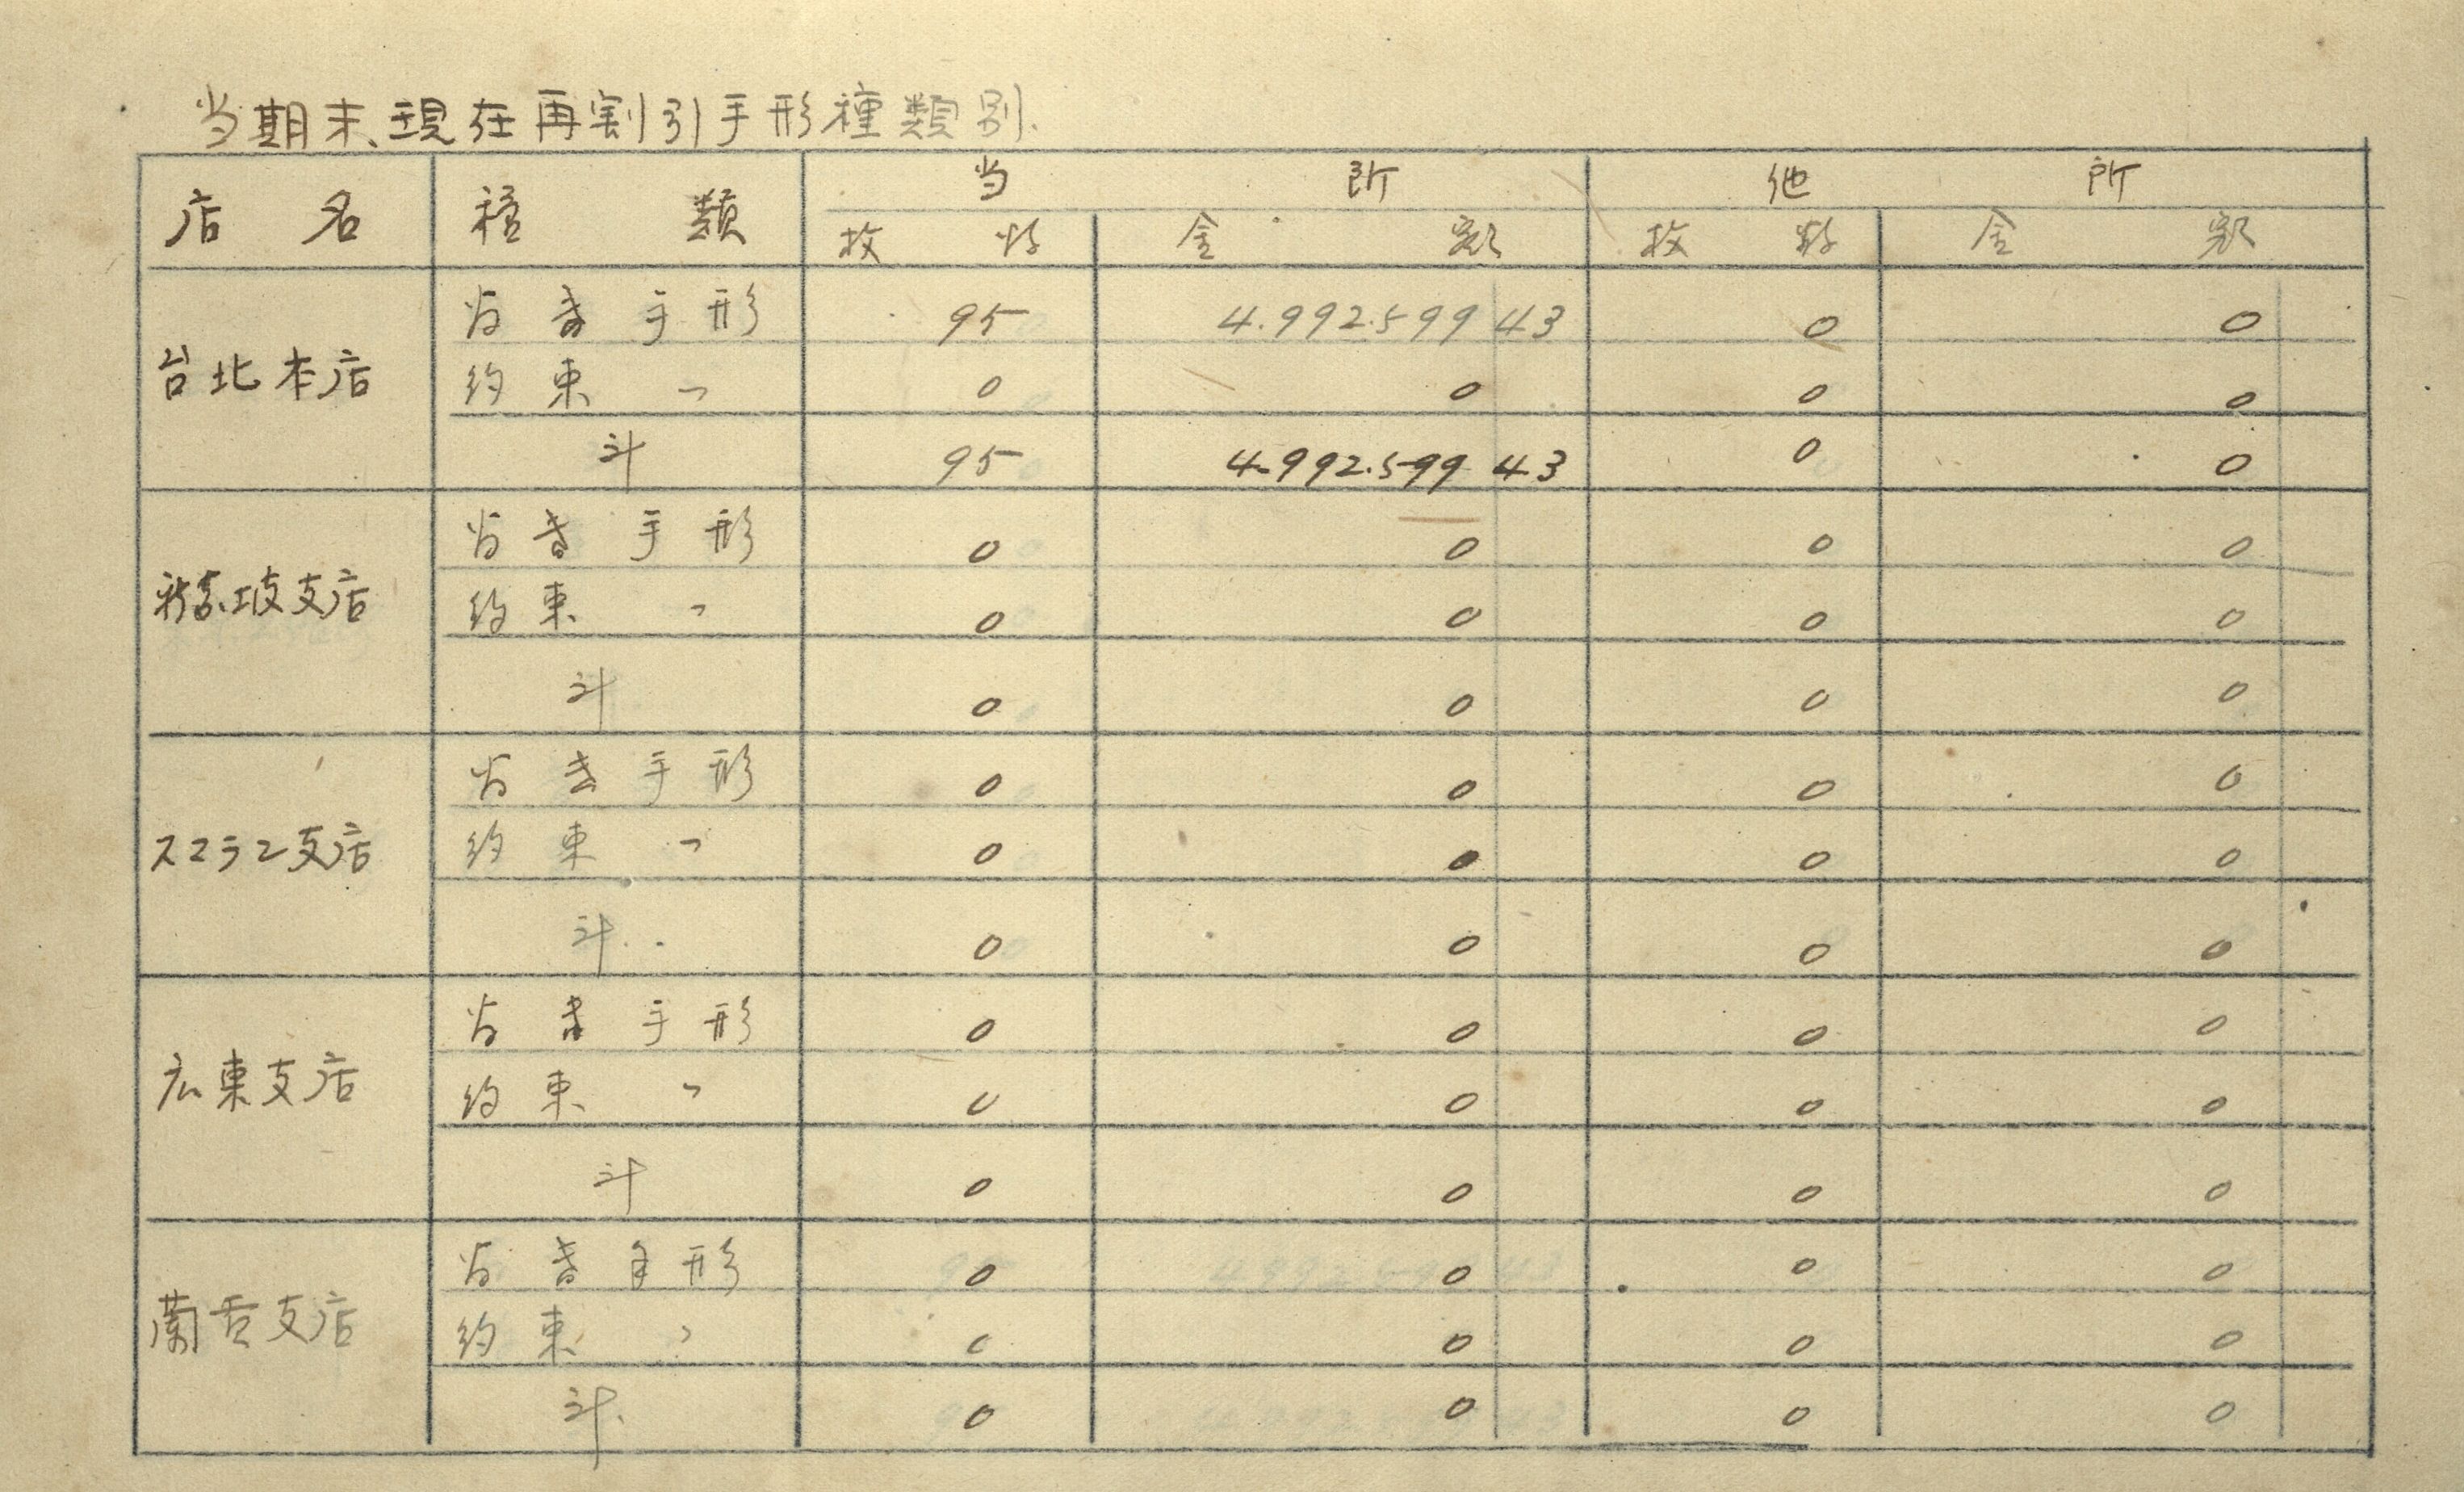 当期末現在再割引手形種類別
店名 種類 当所 他所
枚数 金額 枚数 金額
台北本店 為替手形 95 4.992.599 43 0 0
約束 〃 0 0 0 0
計 95 4.992.599 43 0 0
新嘉坡支店 為替手形 0 0 0 0
約束 〃 0 0 0 0
計 0 0 0 0
スマラン支店 為替手形 0 0 0 0
約束 〃 0 0 0 0
計 0 0 0 0
広東支店 為替手形 0 0 0 0
約束 〃 0 0 0 0
計 0 0 0 0
蘭貢支店 為替手形 0 0 0 0
約束 〃 0 0 0 0
計 0 0 0 0